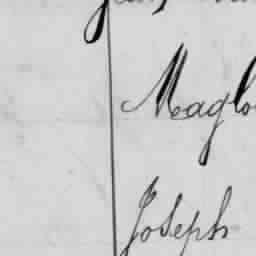 Maglo
Joseph